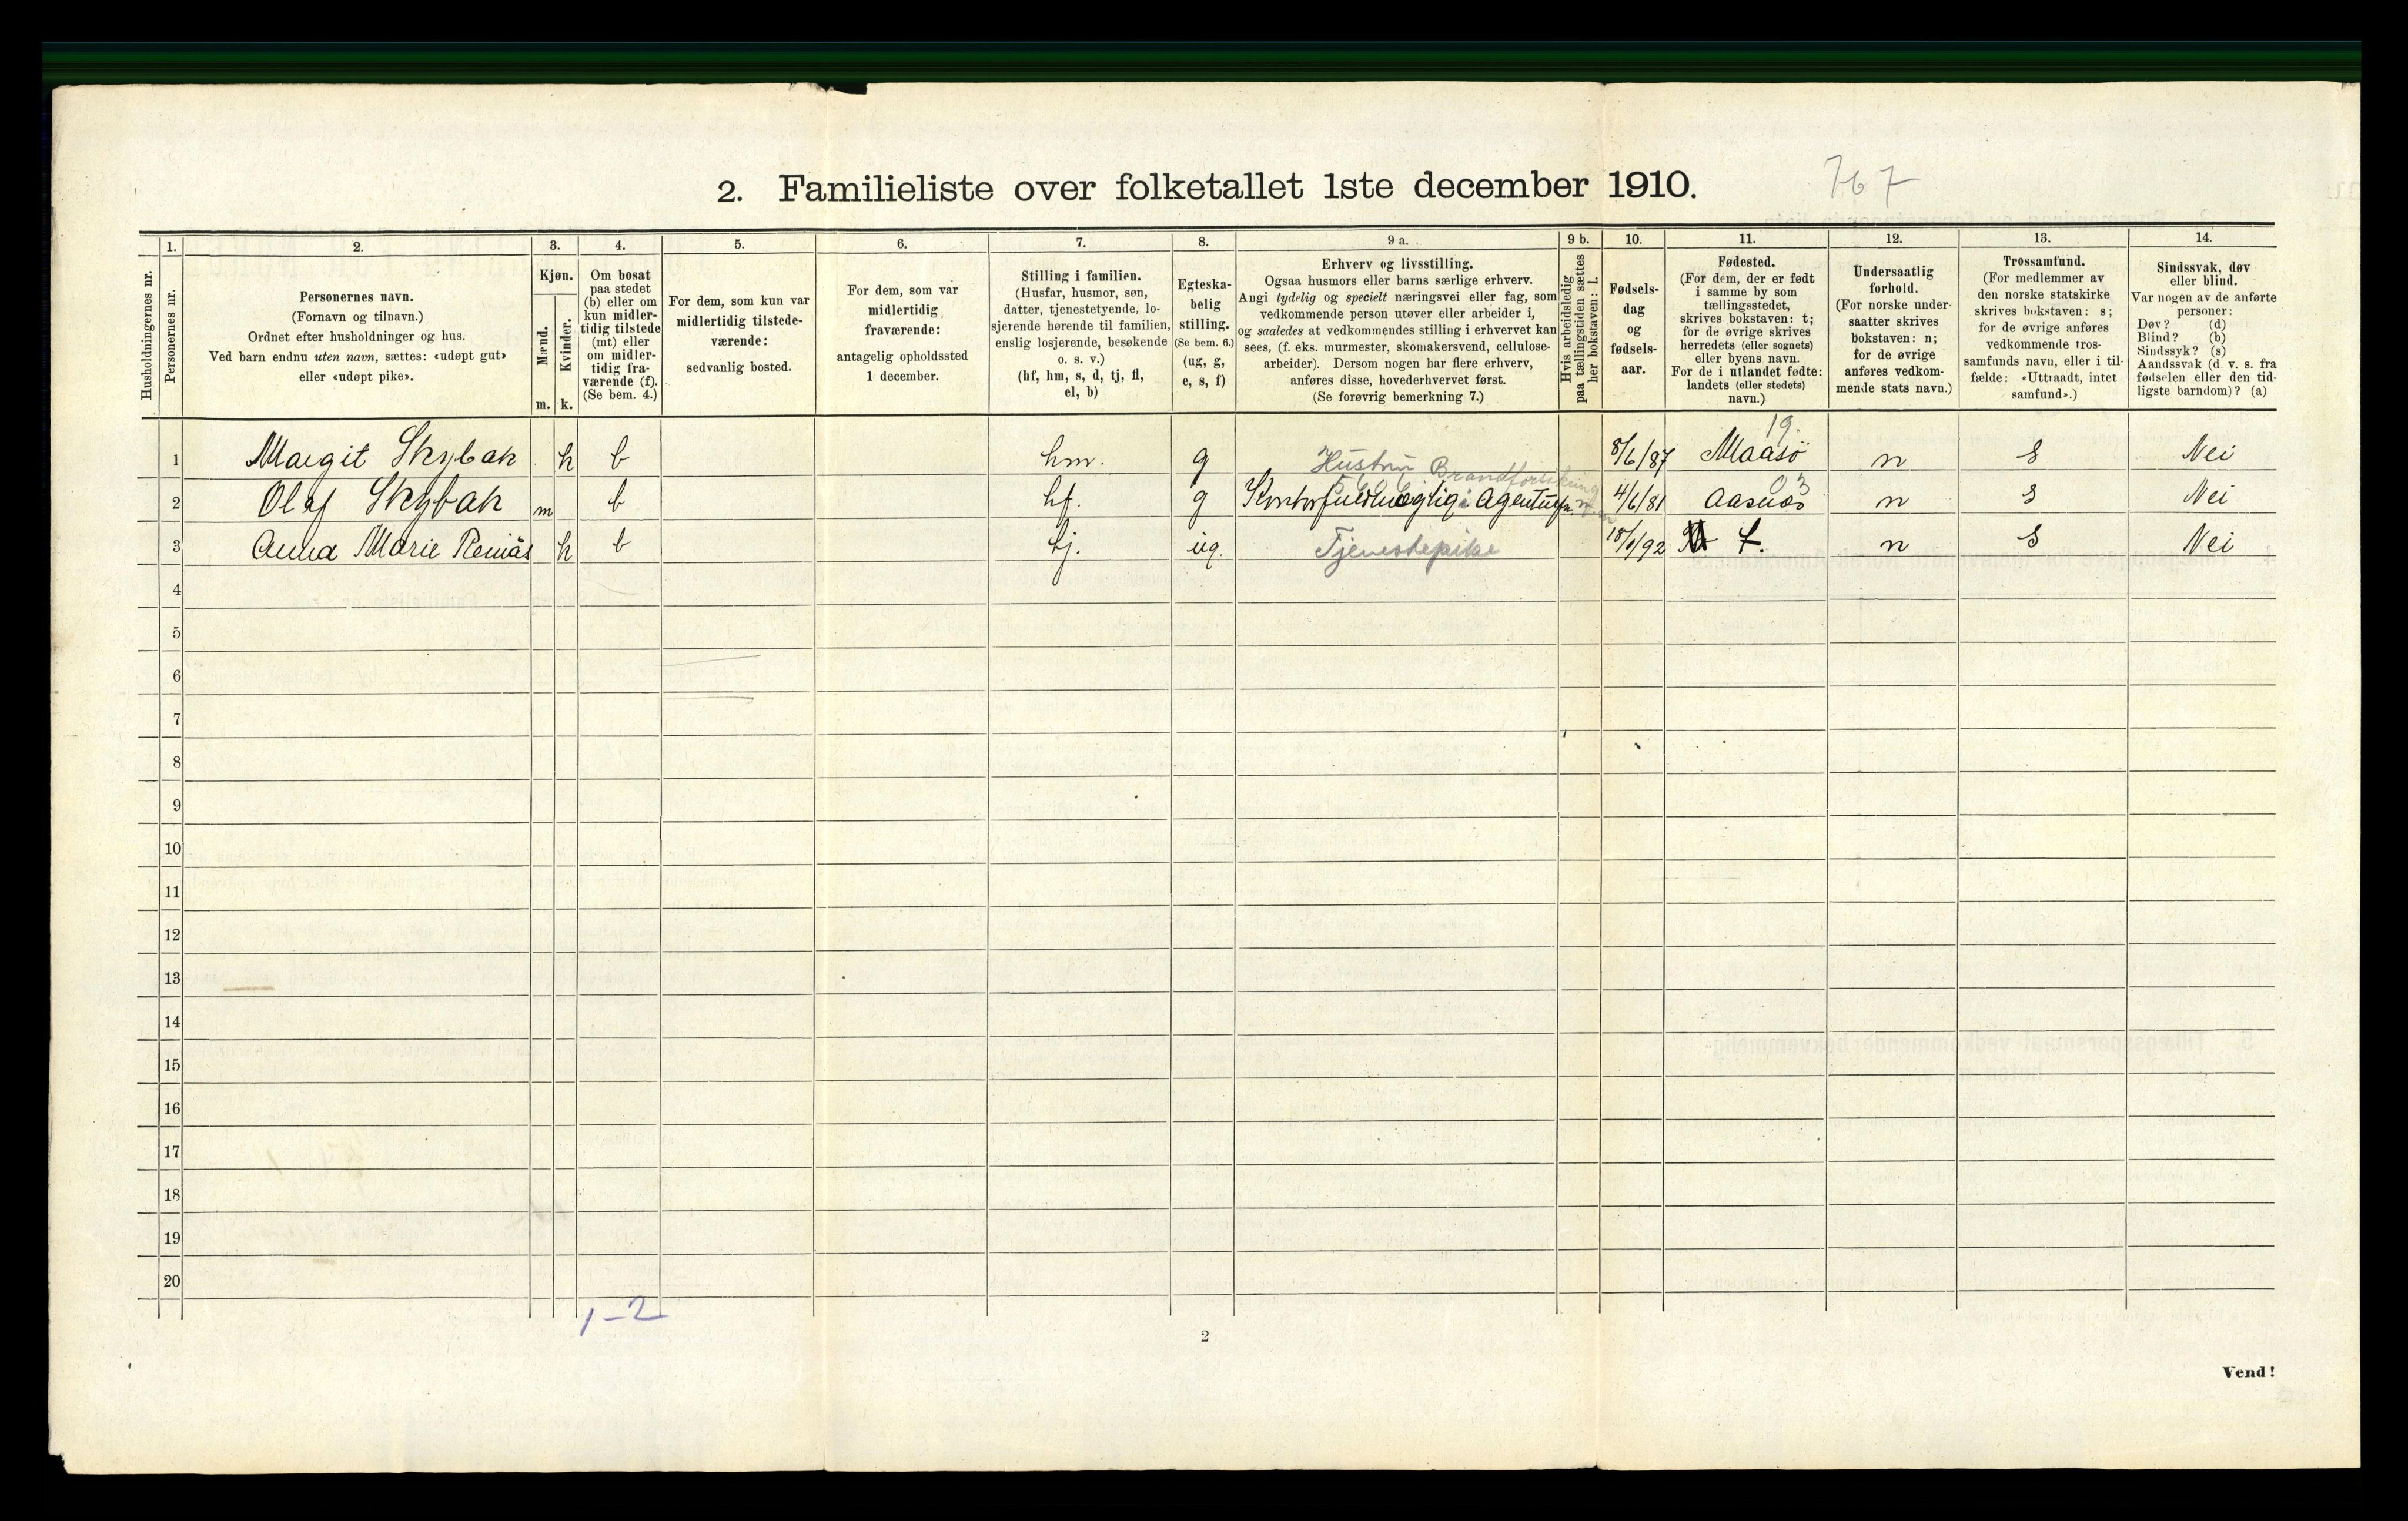 2. Familieliste over folketallet 1ste december 1910.
767
Husholdningernes nr.
1.
Personernes nr.
2.
Personernes navn.
(Fornavn og tilnavn.)
Ordnet efter husholdninger og hus.
Ved barn endnu uten navn, sættes: «udøpt gut»
eller «udøpt pike».
3.
Kjøn.
Mænd.
Kvinder.
m. k.
4.
Om bosat
paa stedet
(b) eller om
kun midler-
tidig tilstede
(mt) eller
om midler-
tidig fra-
værende (f).
(Se bem. 4.)
5.
For dem, som kun var
midlertidig tilstede-
værende:
sedvanlig bosted.
6.
For dem, som var
midlertidig
fraværende:
antagelig opholdssted
1 december.
7.
Stilling i familien.
(Husfar, husmor, søn,
datter, tjenestetyende, lo-
sjerende hørende til familien,
enslig losjerende, besøkende
o. s. v.)
(hf, hm, s, d, tj, fl,
el, b)
8.
Egteska-
belig
stilling.
(Se bem. 6.)
(ug, g,
e, s, f)
9 a.
Erhverv og livsstilling.
Ogsaa husmors eller barns særlige erhverv.
Angi tydelig og specielt næringsvei eller fag, som
vedkommende person utøver eller arbeider i,
og saaledes at vedkommendes stilling i erhvervet kan
sees, (f. eks. murmester, skomakersvend, cellulose-
arbeider). Dersom nogen har flere erhverv,
anføres disse, hovederhvervet først.
(Se forøvrig bemerkning 7.)
9 b.
Hvis arbeidsledig
paa tællingstiden sættes
her bokstaven: l.
10.
Fødsels-
dag
og
fødsels-
aar.
11.
Fødested.
(For dem, der er født
i samme by som
tællingsstedet,
skrives bokstaven: t;
for de øvrige skrives
herredets (eller sognets)
eller byens navn.
For de i utlandet fødte:
landets (eller stedets)
navn.)
12.
Undersaatlig
forhold.
(For norske under-
saatter skrives
bokstaven: n;
for de øvrige
anføres vedkom-
mende stats navn.)
13.
Trossamfund.
(For medlemmer av
den norske statskirke
skrives bokstaven: s;
for de øvrige anføres
vedkommende tros-
samfunds navn, eller i til-
fælde: «Uttraadt, intet
samfund».)
14.
Sindssvak, døv
eller blind.
Var nogen av de anførte
personer:
Døv? (d)
Blind? (b)
Sindssyk? (s)
Aandssvak (d. v. s. fra
fødselen eller den tid-
ligste barndom)? (a)
19.
1 Margit Skybak k b hm. g Hustru 8/6/87 Maasö n S Nei
Brandforsikring
03
2 Olaf Skybak m b hf. g Kontorfuldmægtig i Agenturfm. 4/6/81 Aasnæs n S Nei
3 Anna Marie Renaas k b tj. ug. Tjenestepike 18/1/92 t. n S Nei
4
5
6
7
8
9
10
11
12
13
14
15
16
17
18
19
20
1-2
2
Vend!